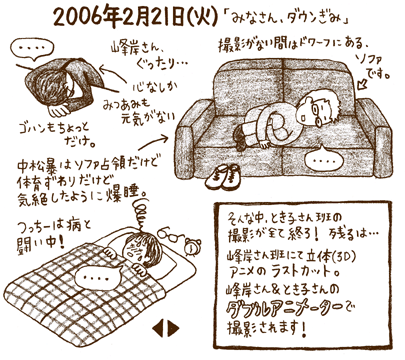 2006年2月21日(火)「みなさん、ダウンぎみ」
・・・・
峰岸さん、
ぐったり…
心なしか
みつあみも
元気がない
ゴハンもちょっと
だけ。
撮影がない間はドワーフにある、
ソファ
です。
・・・・
中松暴はソファ占領だけど
体育ずわりだけど
気絶したように爆睡。
つっちーは病と
闘い中!
・・・・
そんな中、とき子さん班の
撮影が全て終了! 残るは…
峰岸さん班にて立体(3D)
アニメのラストカット。
峰岸さん&とき子さんの
ダブルアニメーターで
撮影されます!